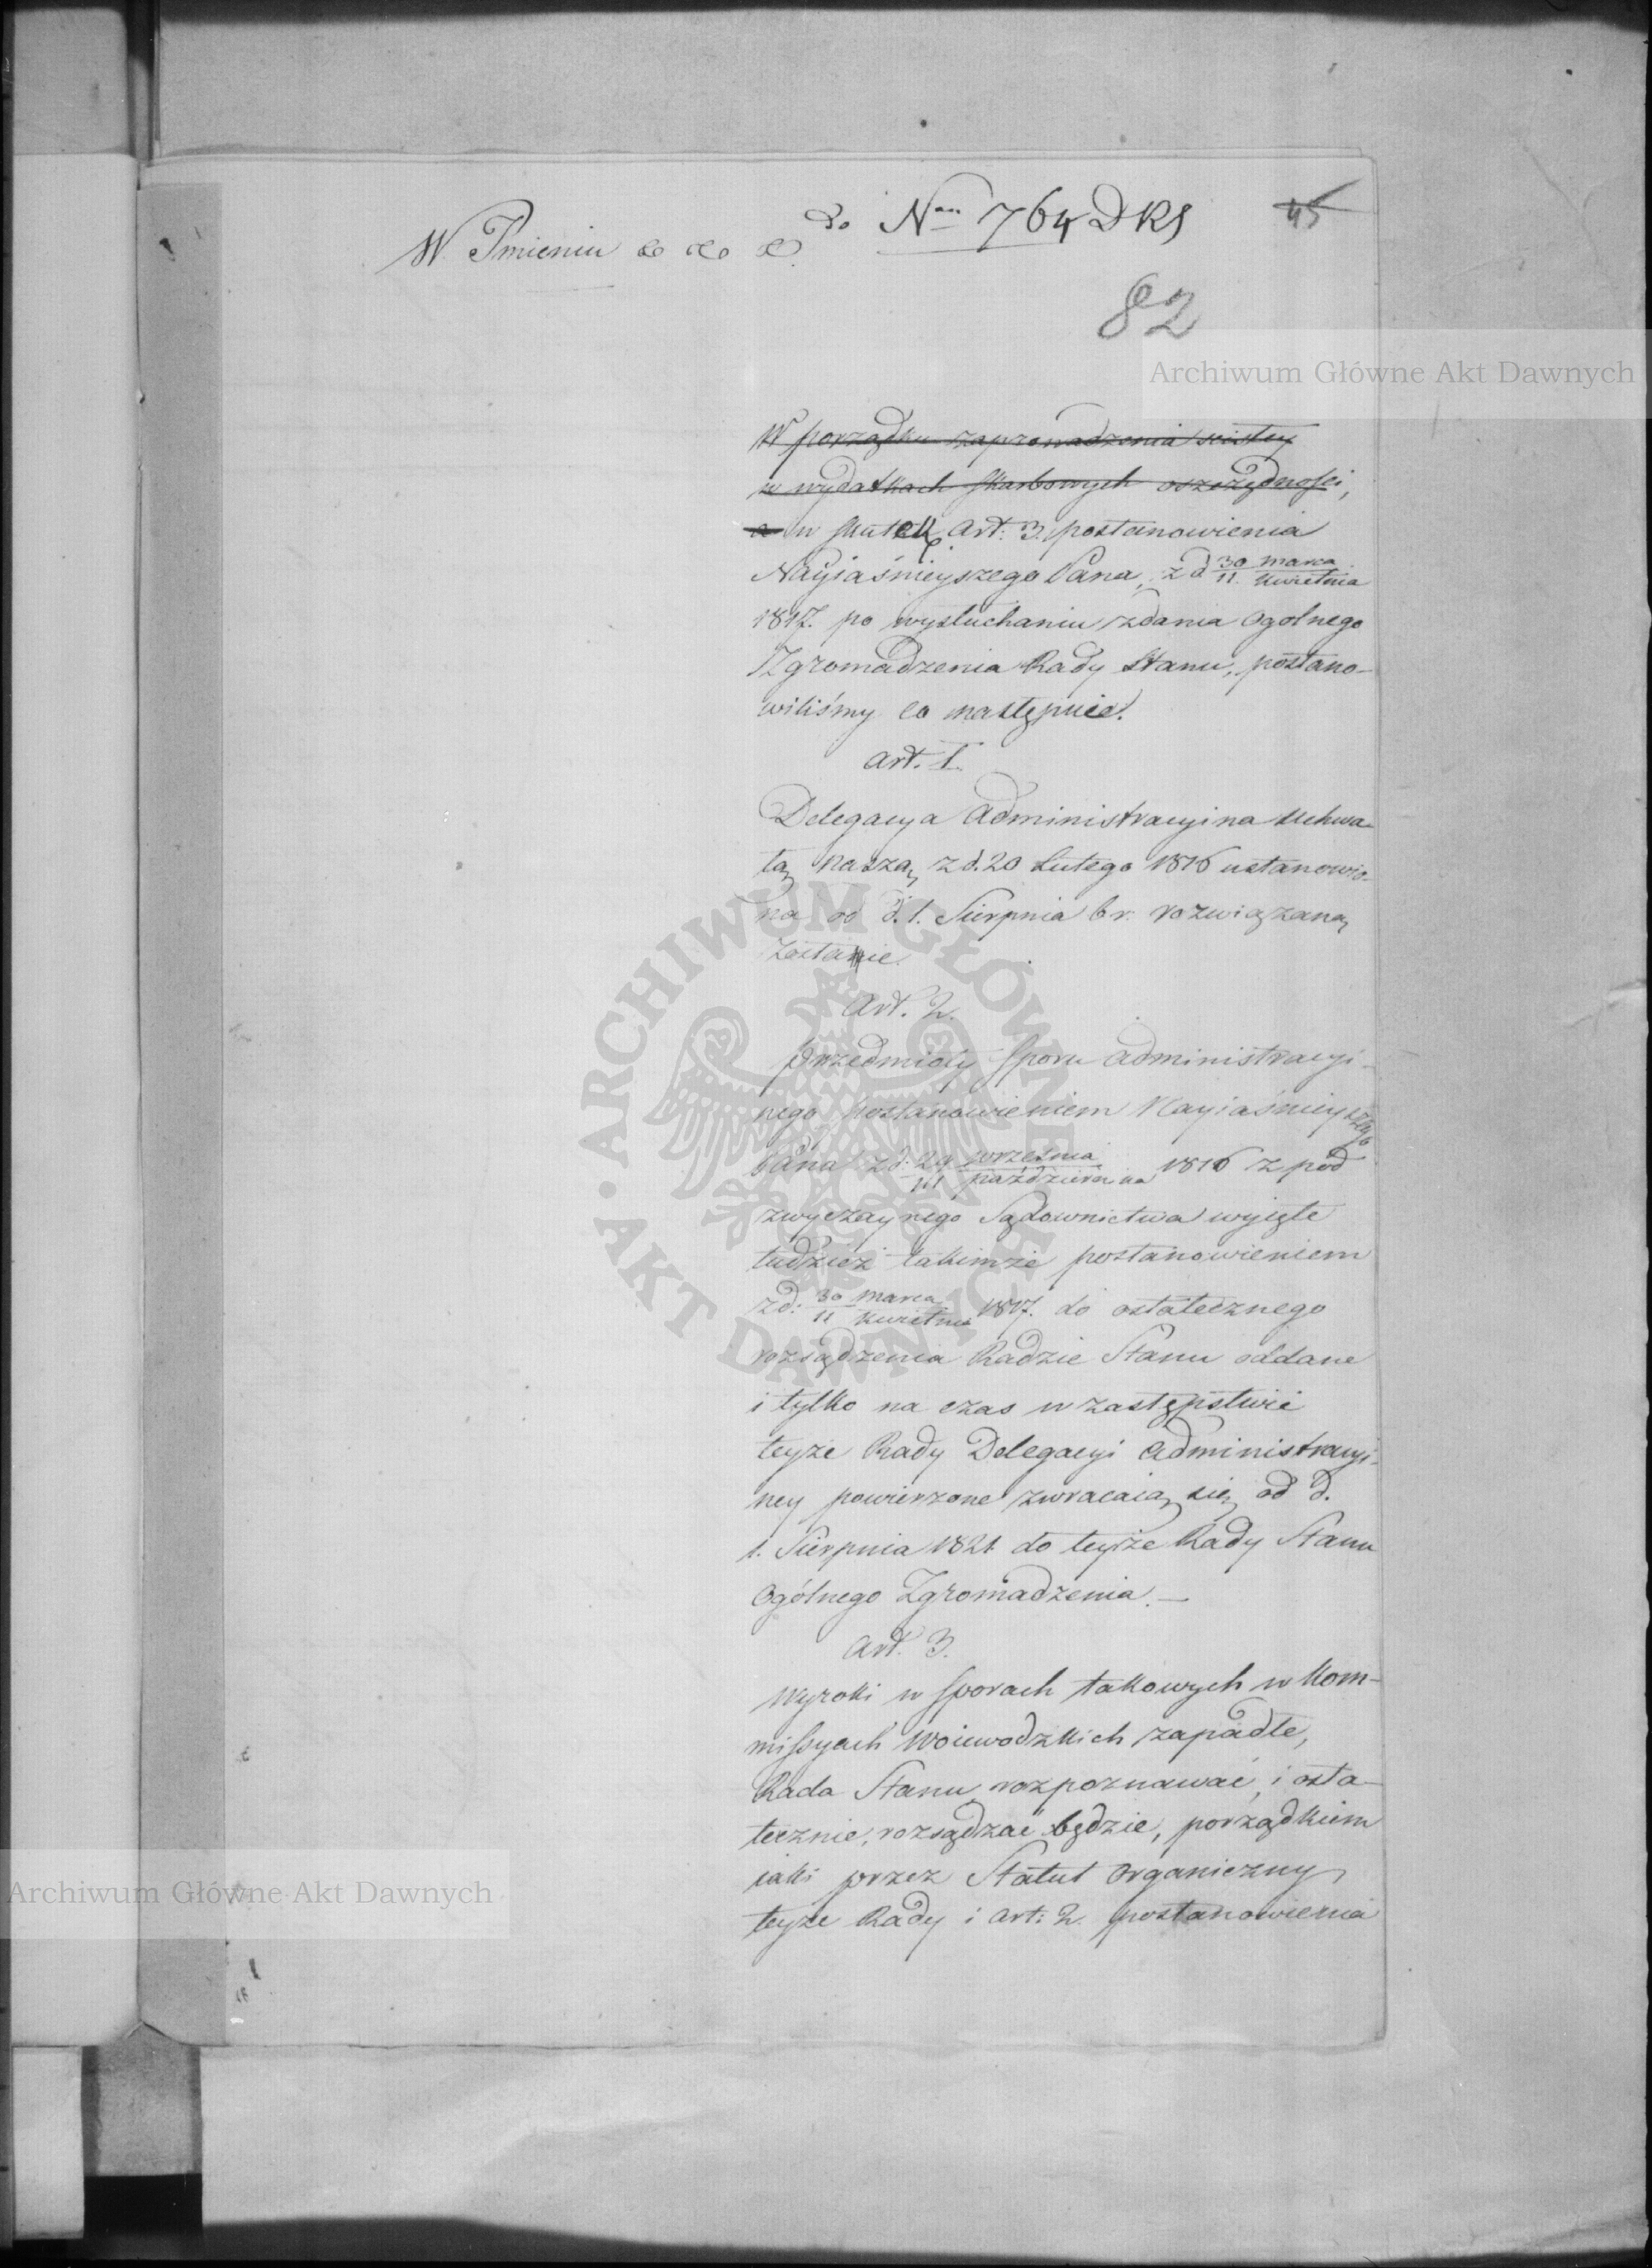 do Nru 764 DRS
45
W Imieniu &c &c &c
82
Archiwum Główne Akt Dawnych
W porządku zaprowadzenia ścisłey
w wydatkach skarbowych oszczędności,
a w skutek Art: 3. postanowienia
Nayiaśnieyszego Pana, z d 30 Marca / 11. Kwietnia
1817. po wysłuchaniu zdania Ogolnego
Zgromadzenia Rady Stanu, postano-
wiliśmy co następuie.
Art. 1.
Delegacya Administracyina Uchwa-
łą naszą z d. 20 Lutego 1816 ustanowio-
na od d. 1. Sierpnia b r. rozwiązaną
zostanie.
Art. 2.
Przedmioty sporu administracyi-
nego postanowieniem Nayiaśnieyszego
Pana z d: 29 września / 11 października 1816 z pod
zwyczaynego Sądownictwa wyięte
tudzież takimże postanowieniem
z d: 30 Marca / 11 Kwietnia 1817. do ostatecznego
rozsądzenia Radzie Stanu oddane
i tylko na czas w zastępstwie
teyże Rady Delegacyi Administracyi-
ney powierzone zwracaią się od d.
1. Sierpnia 1821 do teyże Rady Stanu
Ogólnego Zgromadzenia. —
Art. 3.
Wyroki w sporach takowych w Kom-
missyach Woiewodzkich zapadłe,
Rada Stanu rozpoznawać i osta-
tecznie, rozsądzać będzie, porządkiem
iaki przez Statut Organiczny
teyże Rady i Art: 2. postanowienia
Archiwum Główne Akt Dawnych
ARCHIWUM GŁÓWNE • AKT DAWNYCH •